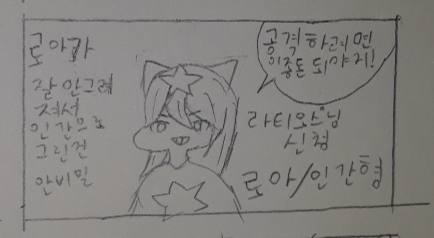 로아가
잘 안그려
져서
인간으로
그린건
안비밀
공격하려면
이종돈 되야지!
라티오스님
신청
로아/인간형